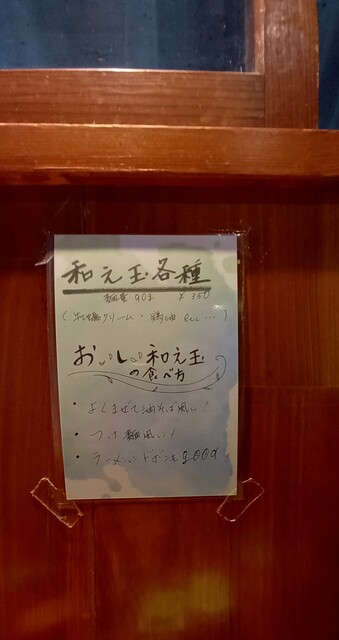 和え玉各種
麺量 90g ¥350
(牡蠣クリーム・鶏油 etc...)
おいしい和え玉
の食べ方
・よくまぜて油そば風に!
・つけ麺風に!
・ラーメンにドボンも good